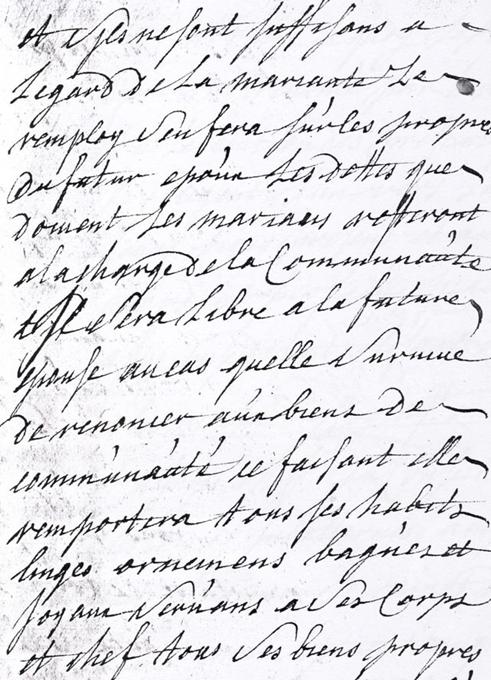 et s'ils ne sont suffisans a
legard de la mariante Le
remploy s'en fera sur les propres
du futur epoux Les dettes que
doivent Les marians resteront
a la charge de la Communauté
et Il sera Libre a la future
epouse au cas quelle survive
de renoncer aux biens de
communauté ce faisant elle
remportera tous ses habits
linges ornemens bagues et
joyaux servans a ses Corps
et chef tous ses biens propres